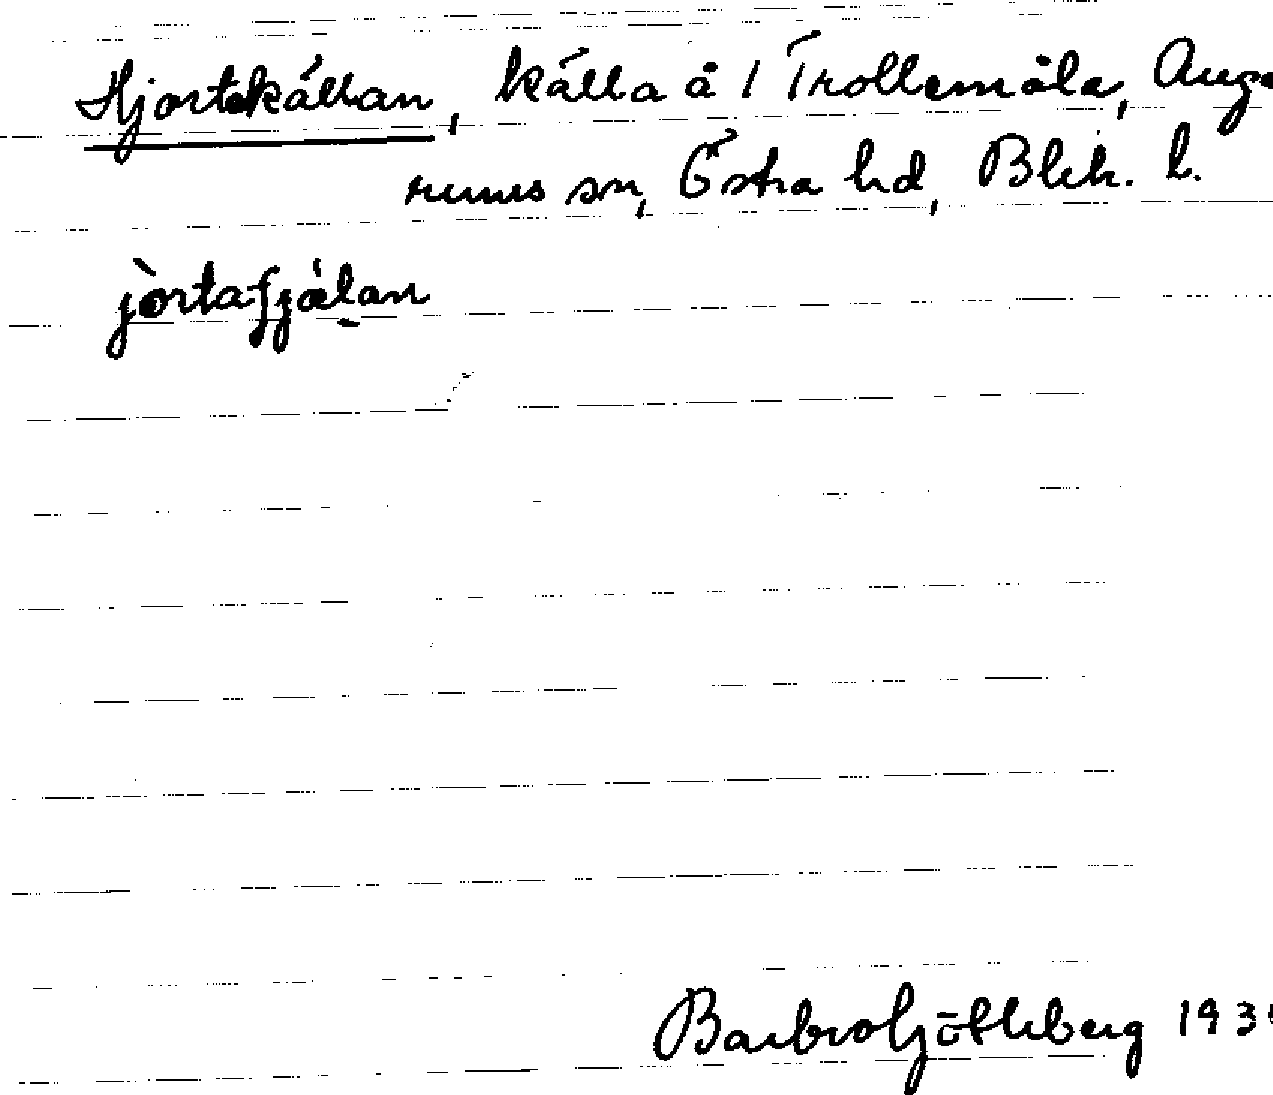 Hjortakällan, källa å 1 Trollemåla, Auge
rums sn, Östra hd, Blek. l.
jòrtafjälan
Barbro Götlеberg 193